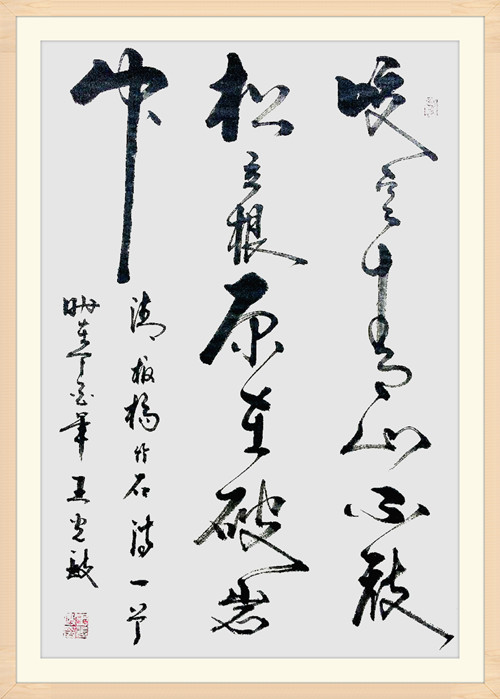 咬定青山不放
松立根原在破岩
中
清板橋竹石诗一首
时在丁年 王